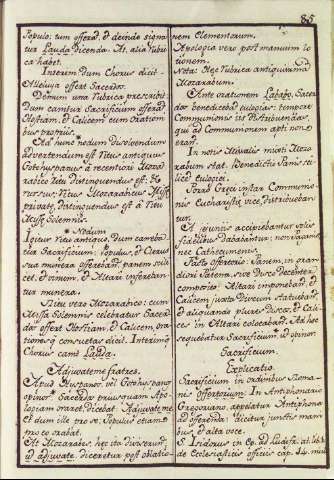 85
Populo: tum offerad, et deinde signa
tur Lauda dicenda. At, alia rubri
ca habet.
Interim dum Chorus dicit
Alleluya offert Sacerdos.
Domum una rubrica prescribit
dum canitur Sacrificium offerad
Hostiam, et Calicem cum oration
bus propriis.
nunc nedum dissolvendum
advertendum est ritus antiquus
Gothyspanus à recentiori Mozara
rabico ritu distinguendus est: et
rursus, ritus Mozarabicus Missæ
private, distinguendus est à ritu
Missæ Solemnis.
Nodum
Igitur ritu antiquo, dum caneba
tur Sacrificium, populus, et Clerus
sua munera offerebant, panem scili
cet, et vinum, et Altari inferebant
tur munera.
Ritu vero Mozarabico: cum
Missa Solemnis celebratur Sacerdos
offert Hostiam, et Calicem, ora
tionesq consuetas dicit. Interimq
Chorus canit Lauda.
Adjuvate me fratres.
Apud Hispanos, vel Gothyspanos
opinor Sacerdos priusquam Apo
logiam oraret, dicebat. Adjuvate me
et dum ille pro se, Populus etiam
pro eo orabat.
At Mozarabes, hec ita diviserunt,
ut adjuvate, diceretur post oblatio
nem Elementorum.
Apologia vero post manuum lo
tionem.
Nota: Hęc rubrica antiquior
Mozarabum.
Ante orationem Lababo, Sacer
dos benedicebat eulogias: tempore
Communionis distribuendas
qui ad Communionem apti non
erant.
In notis Missalis mixti Moza
rabum stat. Benedictis Panis sci
licet eulogici.
Porrò Græci instar Communio
nis Eucharisticæ vice, distribueban
tur.
A jejunis accipiebantur solis
fidelibus dabantur; non
nec Cathecumenis.
Facto offertorio: Panem, in gran
diori Patena, sive Disco decenter
composito Altari imponebant, et
Calicem juxta Discum statuebant,
et aliquando plures Discos, et Cali
ces in Altari colocabant. Ad hec
sequebatur Sacrificium, ut opinor
Sacrificium.
Explicatio.
Sacrificium in ordinibus Roma
nis Offertorium: In Antiphonario
Gregoriano, appelatur Antiphona
ad offerenda: dicitur, juxtis manu
bus, et alta voce.
S. Isidorus in Ep. ad Ludifr. at. lib. 1.
de Ecclesiasticis officiis cap. 14.